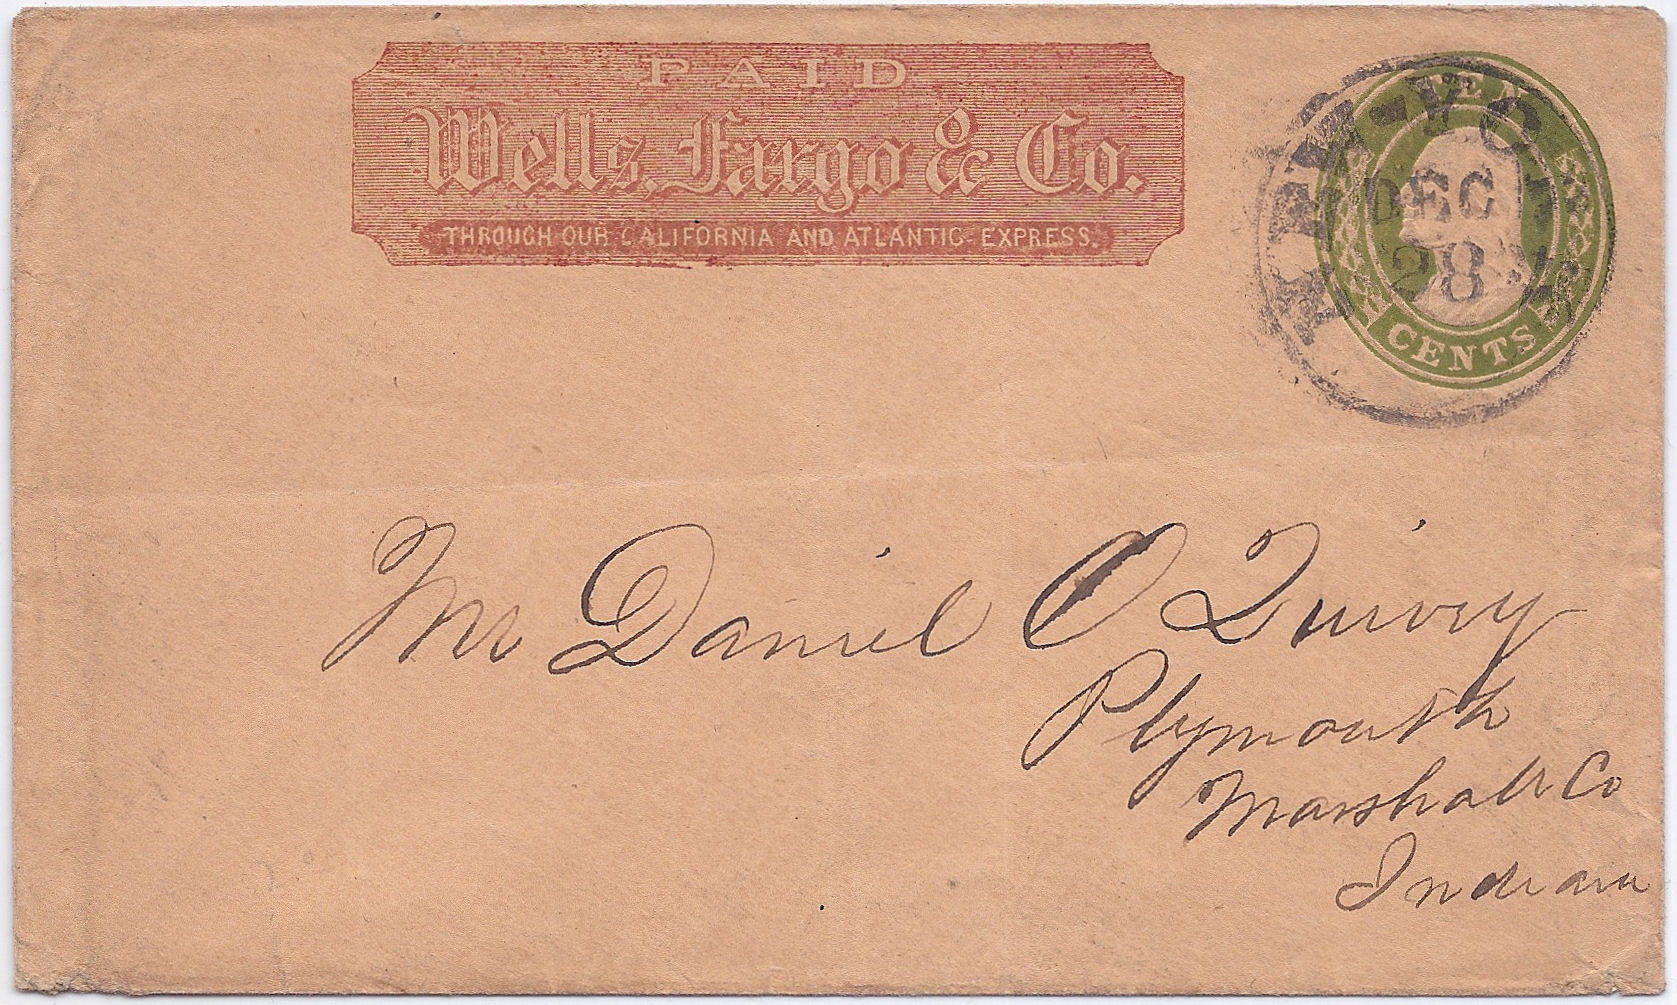 PAID
Wells, Fargo & Co.
THROUGH OUR CALIFORNIA AND ATLANTIC EXPRESS.
TEN
CENTS
NEW-YORK
DEC
28
Mr Daniel O Quivey
Plymouth
Marshall Co
Indiana